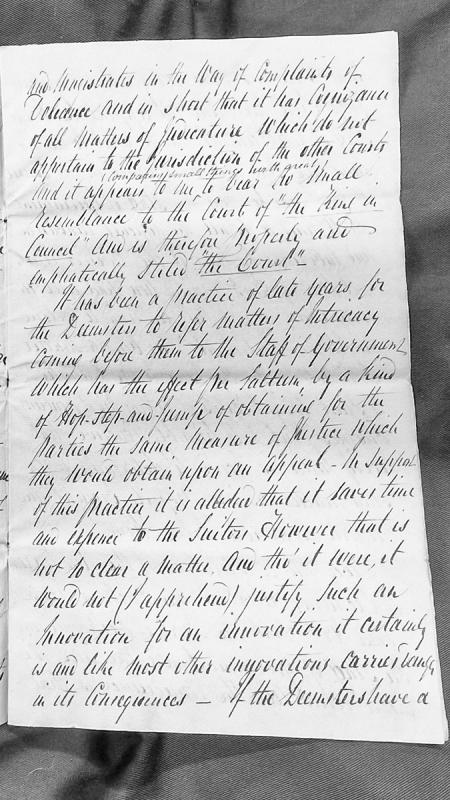 and Magistrates in the Way of Complaints of
Doleance and in short that it has Cognizance
of all Matters of Judicature Which do not
appertain to the Jurisdiction of the other Courts
Comparing small things with great
And it appears to me to bear no small
resemblance to the Court of "the King in
Council" And is therefore properly and
emphatically stiled "the Court"
It has been a practice of late years for
the Deemsters to refer matters of Intricacy
coming before them to the Staff of Government
Which has the effect per Saltum by a kind
of Hop-step-and-jump of obtaining for the
parties the same measure of Justice which
they would obtain upon an Appeal - In Support
of this practice it is alledged that it saves time
and expence to the Suitors However that is
not so clear a matter. And tho' it were, it
would not (I apprehend) justify such an
Innovation for an innovation it certainly
is and like most other innovations carries danger
in its Consequences — If the Deemsters have a